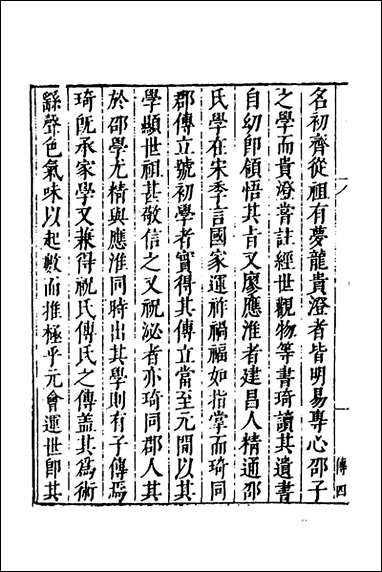 傳四
名初齊從祖有夢龍貴澄者皆明易專心邵子
之學而貴澄嘗註經世觀物等書琦讀其遺書
自幼即領悟其旨又廖應淮者建昌人精通邵
氏學在宋季言國家運祚禍福如指掌而琦同
郡傅立號初學者實得其傳立當至元間以其
學顯世祖甚敬信之又祝泌者亦琦同郡人其
於邵學尤精與應淮同時出其學則有子傳焉
琦旣承家學又兼得祝氏傅氏之傳蓋其為術
繇聲色氣味以起數而推極乎元會運世即其